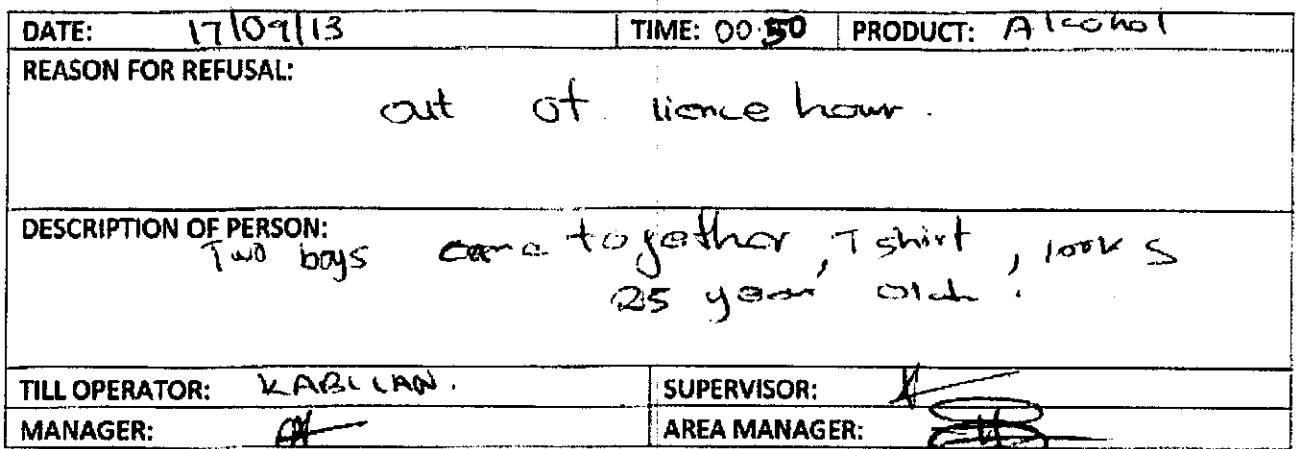 DATE: 17/09/13 TIME: 00.50 PRODUCT: Alcohol
REASON FOR REFUSAL:
out of lience hour.
DESCRIPTION OF PERSON:
Two boys came together, T shirt, looks
25 year old.
TILL OPERATOR: KABILAN. SUPERVISOR:
MANAGER: AREA MANAGER: